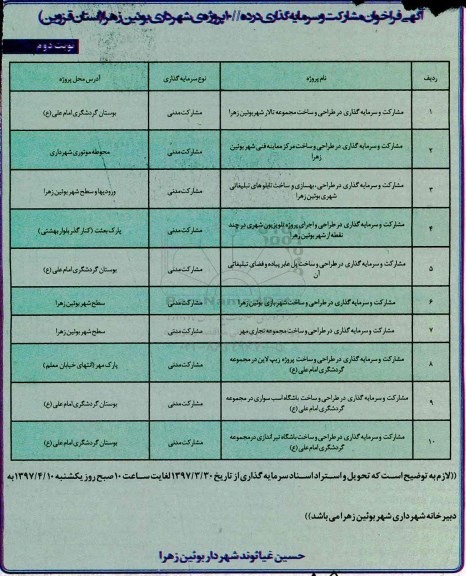 آگهی فراخوان مشارکت و سرمایه گذاری در ده//۱۰پروژه ی شهرداری بوئین زهرا(استان قزوین)
نوبت دوم
ردیف نام پروژه نوع سرمایه گذاری آدرس محل پروژه
۱ مشارکت و سرمایه گذاری در طراحی و ساخت مجموعه تالار شهر بوئین زهرا مشارکت مدنی بوستان گردشگری امام علی (ع)
۲ مشارکت و سرمایه گذاری در طراحی و ساخت مرکز معاینه فنی شهر بوئین
زهرا مشارکت مدنی محوطه موتوری شهرداری
۳ مشارکت و سرمایه گذاری در طراحی، بهسازی و ساخت تابلوهای تبلیغاتی
شهری بوئین زهرا مشارکت مدنی ورودیها و سطح شهر بوئین زهرا
۴ مشارکت و سرمایه گذاری در طراحی و اجرای پروژه تلویزیون شهری در چند
نقطه از شهر بوئین زهرا مشارکت مدنی پارک بعثت (کنار گذر بلوار بهشتی)
۵ مشارکت و سرمایه گذاری در طراحی و ساخت پل عابر پیاده و فضای تبلیغاتی
آن مشارکت مدنی بوستان گردشگری امام علی (ع)
۶ مشارکت و سرمایه گذاری در طراحی و ساخت شهربازی بوئین زهرا مشارکت مدنی سطح شهر بوئین زهرا
۷ مشارکت و سرمایه گذاری در طراحی و ساخت مجموعه تجاری مهر مشارکت مدنی سطح شهر بوئین زهرا
۸ مشارکت و سرمایه گذاری در طراحی و ساخت پروژه زیپ لاین در مجموعه
گردشگری امام علی (ع) مشارکت مدنی پارک مهر (انتهای خیابان معلم)
۹ مشارکت و سرمایه گذاری در طراحی و ساخت باشگاه اسب سواری در مجموعه
گردشگری امام علی (ع) مشارکت مدنی بوستان گردشگری امام علی (ع)
۱۰ مشارکت و سرمایه گذاری در طراحی و ساخت باشگاه تیراندازی در مجموعه
گردشگری امام علی (ع) مشارکت مدنی بوستان گردشگری امام علی (ع)
((لازم به توضیح است که تحویل و استرداد اسناد سرمایه گذاری از تاریخ ۱۳۹۷/۳/۳۰ لغایت ساعت ۱۰ صبح روز یکشنبه ۱۳۹۷/۴/۱۰ به
دبیرخانه شهرداری شهر بوئین زهرا می باشد))
حسین غیاثوند شهردار بوئین زهرا